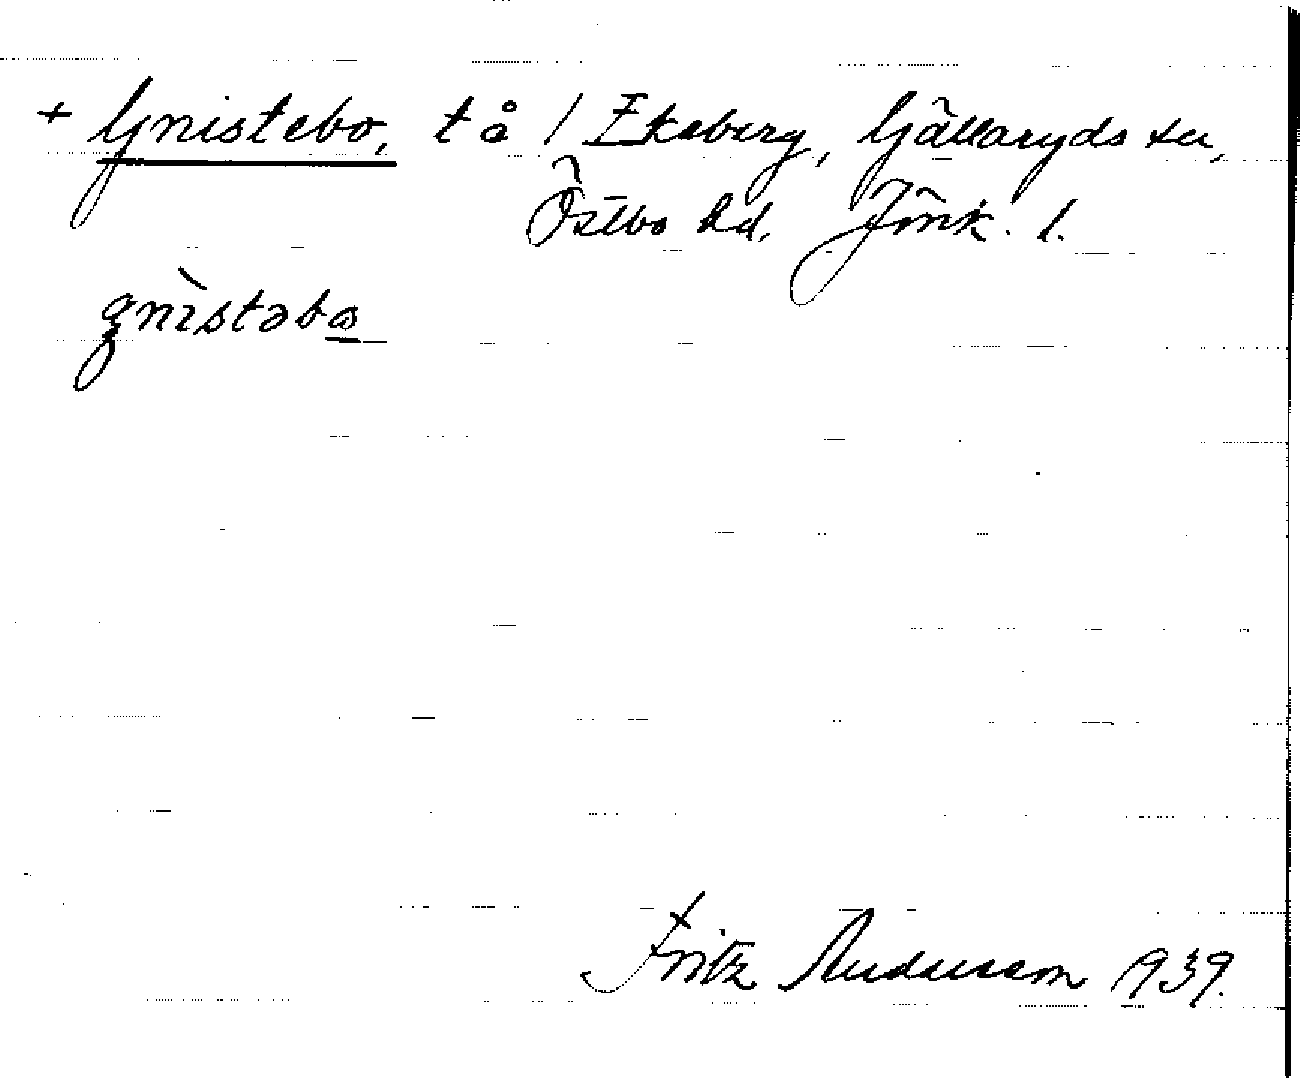 + Gnistebo, tå / Ekeberg, Gällaryds sn,
Östbo hd. Jönk. l.
gnìstəbo
Fritz Andersson 1939.